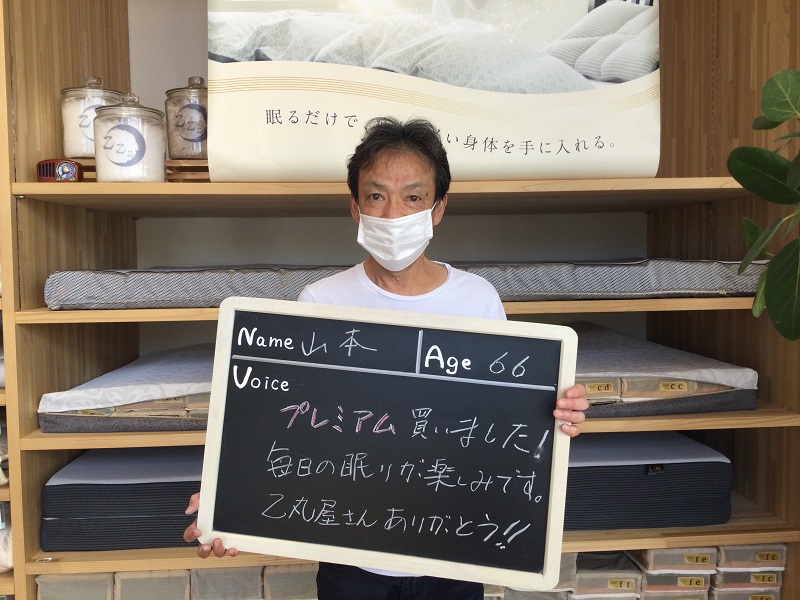 眠るだけで
い身体を手に入れる。
ZZz
ZZz
Name 山本
Age 66
Voice
プレミアム買いました!
毎日の眠りが楽しみです。
乙丸屋さんありがとう!!
cd
cc
ff
fe
fe